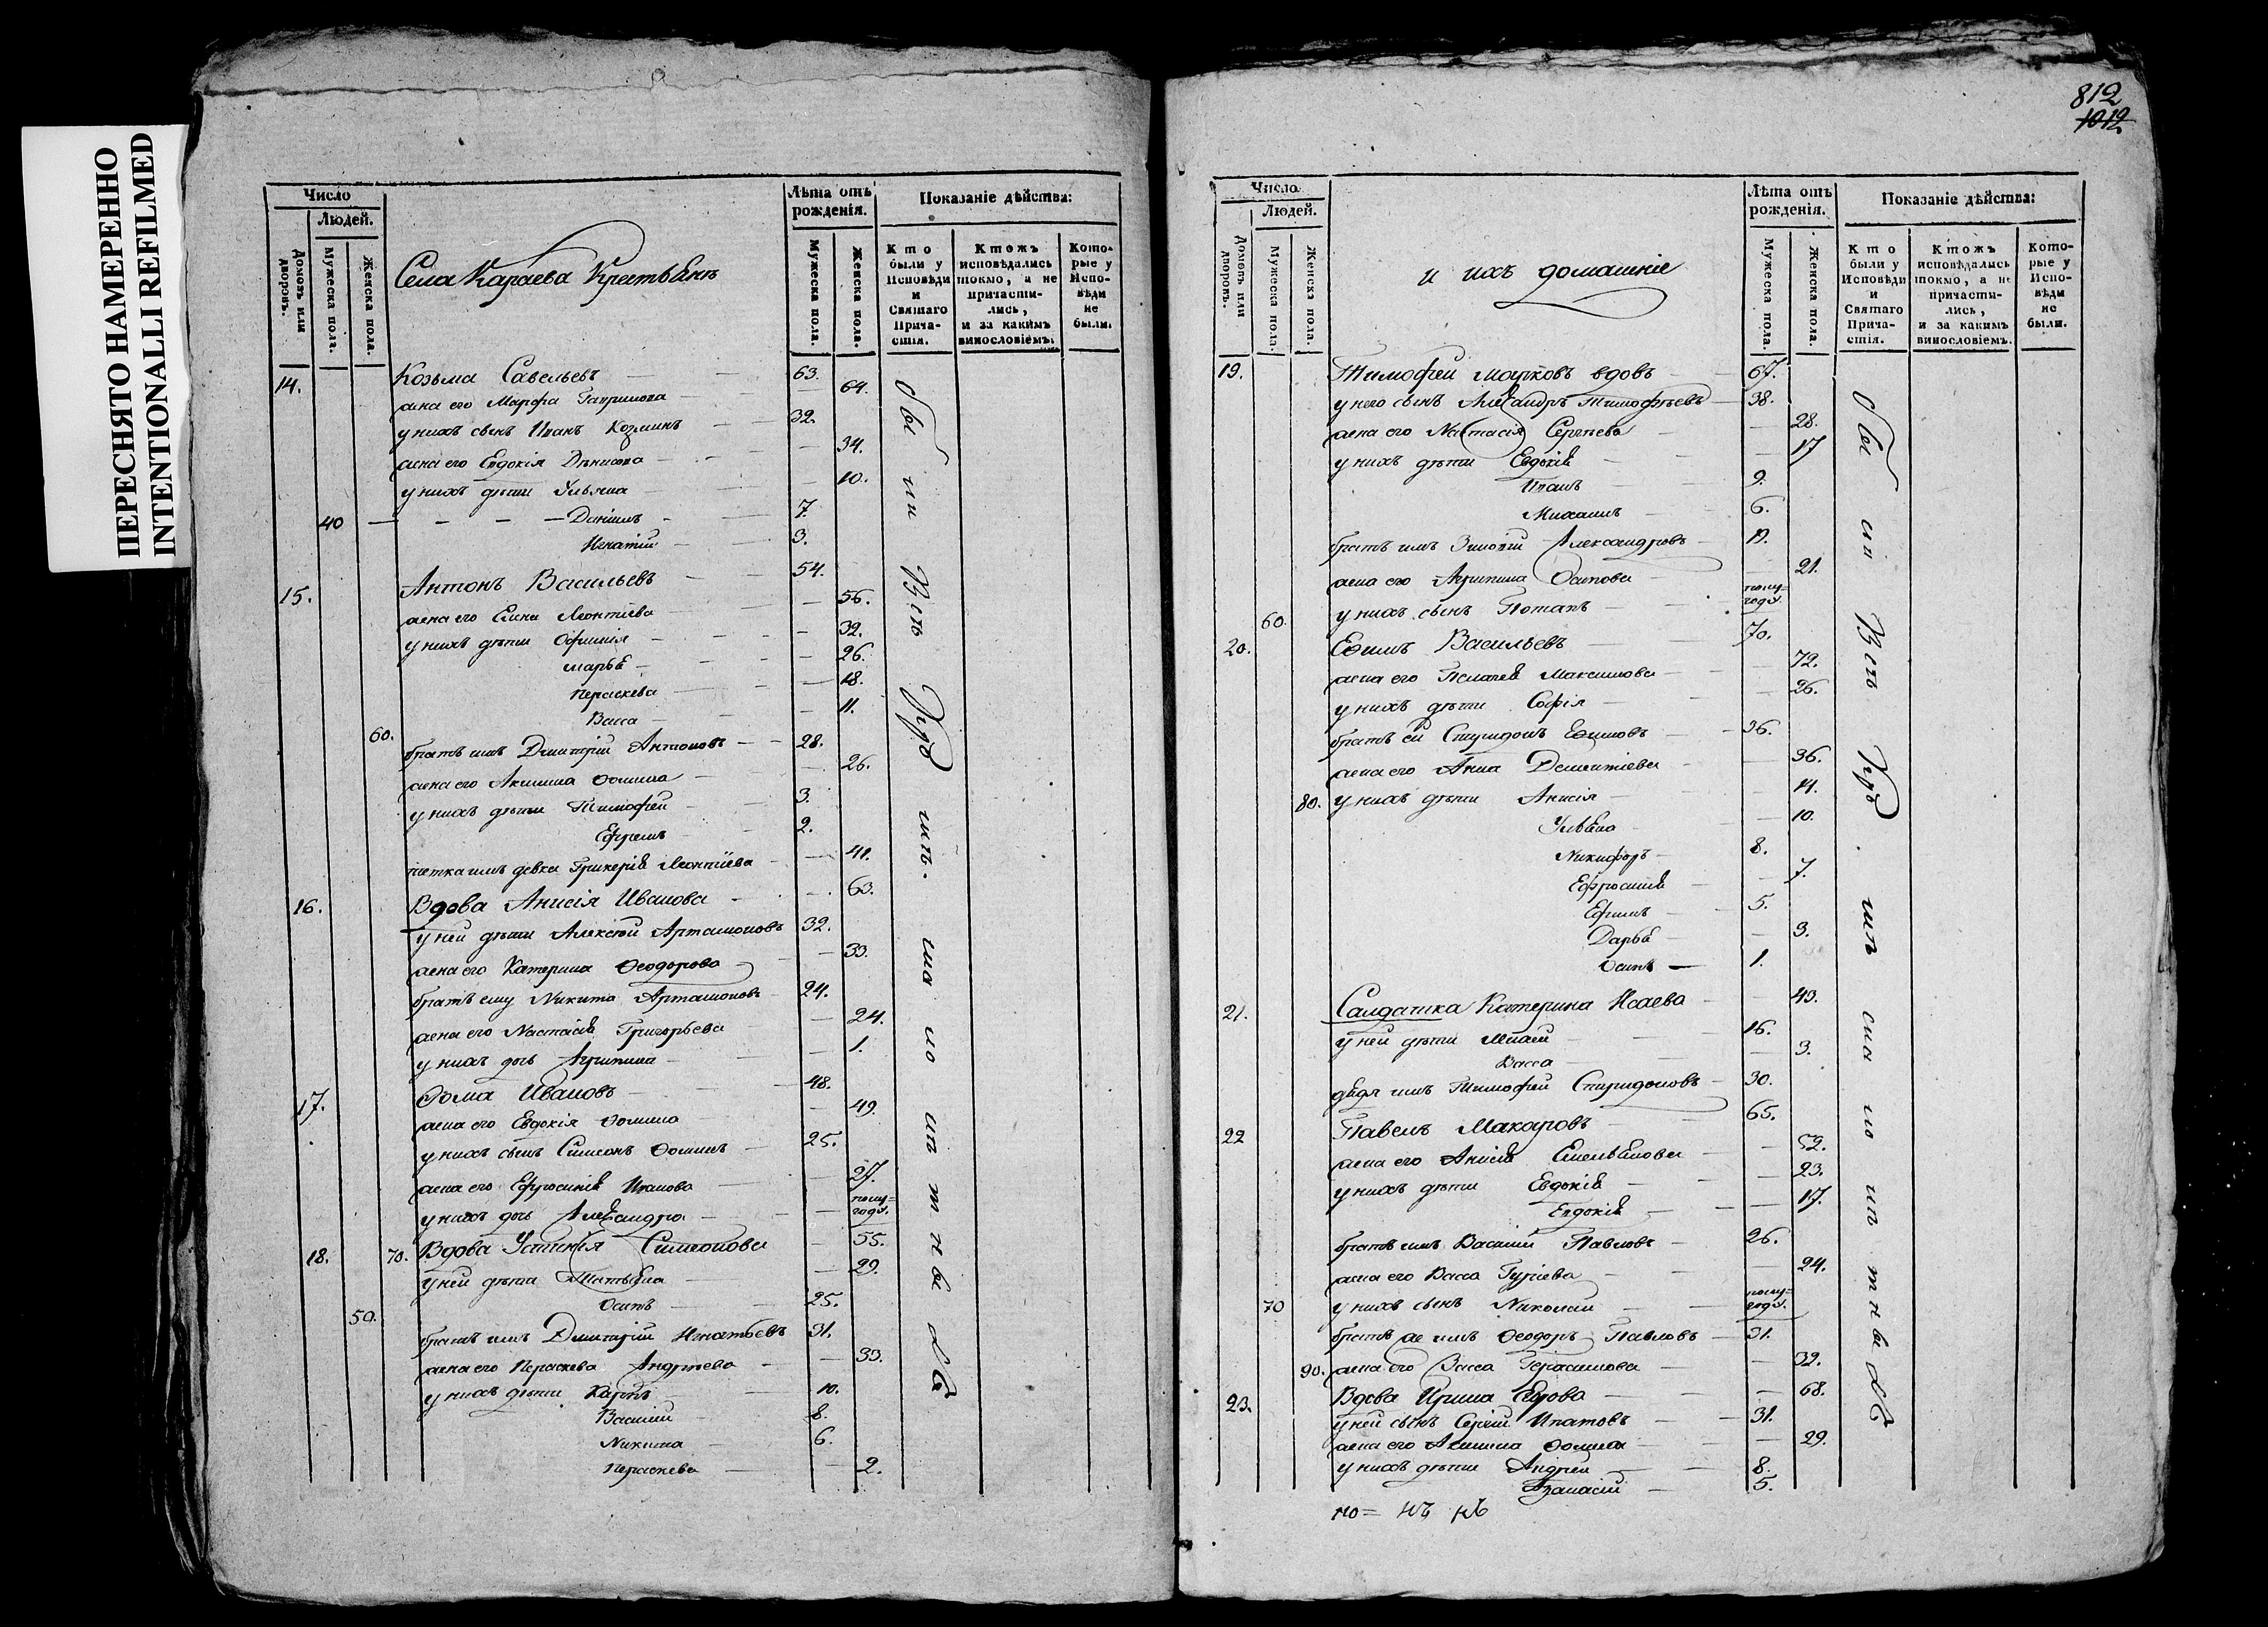 ПЕРЕСНЯТО НАМЕРЕННО
INTENTIONALLI REFILMED
Число
Людей.
Домовъ или дворовъ.
Мужеска пола.
Женска пола.
Села Караева Крестьянъ
Лѣта отъ рожденія.
Мужеска пола.
Женска пола.
Показаніе дѣйства:
Кто были у Исповѣди и Святаго Причастія.
Ктожъ исповѣдались токмо, а не причастились, и за какимъ винословіемъ.
Которые у Исповѣди не были.
14. Козьма Савельевъ 63.
жена его Марфа 64.
у нихъ сынъ Иванъ Козминъ 32.
жена его Евдокія Денисова 34.
у нихъ дѣти Ульяна 10.
40 Даніилъ 7.
Игнатій 3.
15. Антонъ Васильевъ 54.
жена его Елена Леонтіева 56.
у нихъ дѣти Офимія 32.
Марья 26.
Пераскева 18.
Васса 11.
60. братъ имъ Дмитрій Антоновъ 28.
жена его Акилина Ѳомина 26.
у нихъ дѣти Тимофей 3.
Ефремъ 2.
тетка имъ девка Гликерія Леонтіева 41.
16. Вдова Анисія Иванова 63.
у ней дѣти Алексѣй Артамоновъ 32.
жена его Катерина Ѳеодорова 33.
братъ ему Никита Артамоновъ 24.
жена его Настасія Григорьева 24.
у нихъ дочь Агрипина 1.
17. Ѳома Ивановъ 48.
жена его Евдокія Ѳомина 49.
у нихъ сынъ Симеонъ Ѳоминъ 25.
жена его Ефросинія Иванова 27.
у нихъ дочь Александра полугода.
18. 70. Вдова Устинія Симеонова 55.
у ней дѣти Татьяна 29.
Осипъ 25.
50. братъ имъ Дмитрій Игнатьевъ 31.
жена его Пераскева Андреева 33.
у нихъ дѣти Карпъ 10.
Василій 8.
Никита 6.
Пераскева 2.
812
1012
Число
Людей.
Домовъ или дворовъ.
Мужеска пола.
Женска пола.
и ихъ домашніе
Лѣта отъ рожденія.
Мужеска пола.
Женска пола.
Показаніе дѣйства:
Кто были у Исповѣди и Святаго Причастія.
Ктожъ исповѣдались токмо, а не причастились, и за какимъ винословіемъ.
Которые у Исповѣди не были.
19. Тимофей Марковъ вдовъ 67.
у него сынъ Александръ Тимофѣевъ 38.
жена его Настасія Сергѣева 28.
у нихъ дѣти Евдокія 17
Иванъ 9.
Михаилъ 6.
братъ имъ Зиновій Александровъ 19.
жена его Агрипина Осипова 21.
60. у нихъ сынъ Потапъ полугода.
20. Ефимъ Васильевъ 70.
жена его Пелагея Максимова 72.
у нихъ дѣти Софія 26.
братъ ей Спиридонъ Ефимовъ 36.
жена его Анна Дементіева 36.
80. у нихъ дѣти Анисія 14.
Ульяна 10.
Никифоръ 8.
Ефросинія 7.
Ефимъ 5.
Дарья 3.
Осипъ 1.
21. Салдатка Катерина Исаева 43.
у ней дѣти 16.
Васса 3.
дядя имъ Тимофей Спиридоновъ 30.
22 Павелъ Макаровъ 65.
жена его Анисія Емельянова 52.
у нихъ дѣти Евдокія 23.
Евдокія 17.
братъ имъ Василій Павловъ 26.
жена его Васса Гуріева 24.
70 у нихъ сынъ Николай полугода.
братъ же имъ Ѳеодоръ Павловъ 31.
90. жена его Васса Герасимова 32.
23. Вдова Ирина Егорова 68.
у ней сынъ Сергій Ипатовъ 31.
жена его Акилина Ѳомина 29.
у нихъ дѣти Андрей 8.
Афанасій 5.